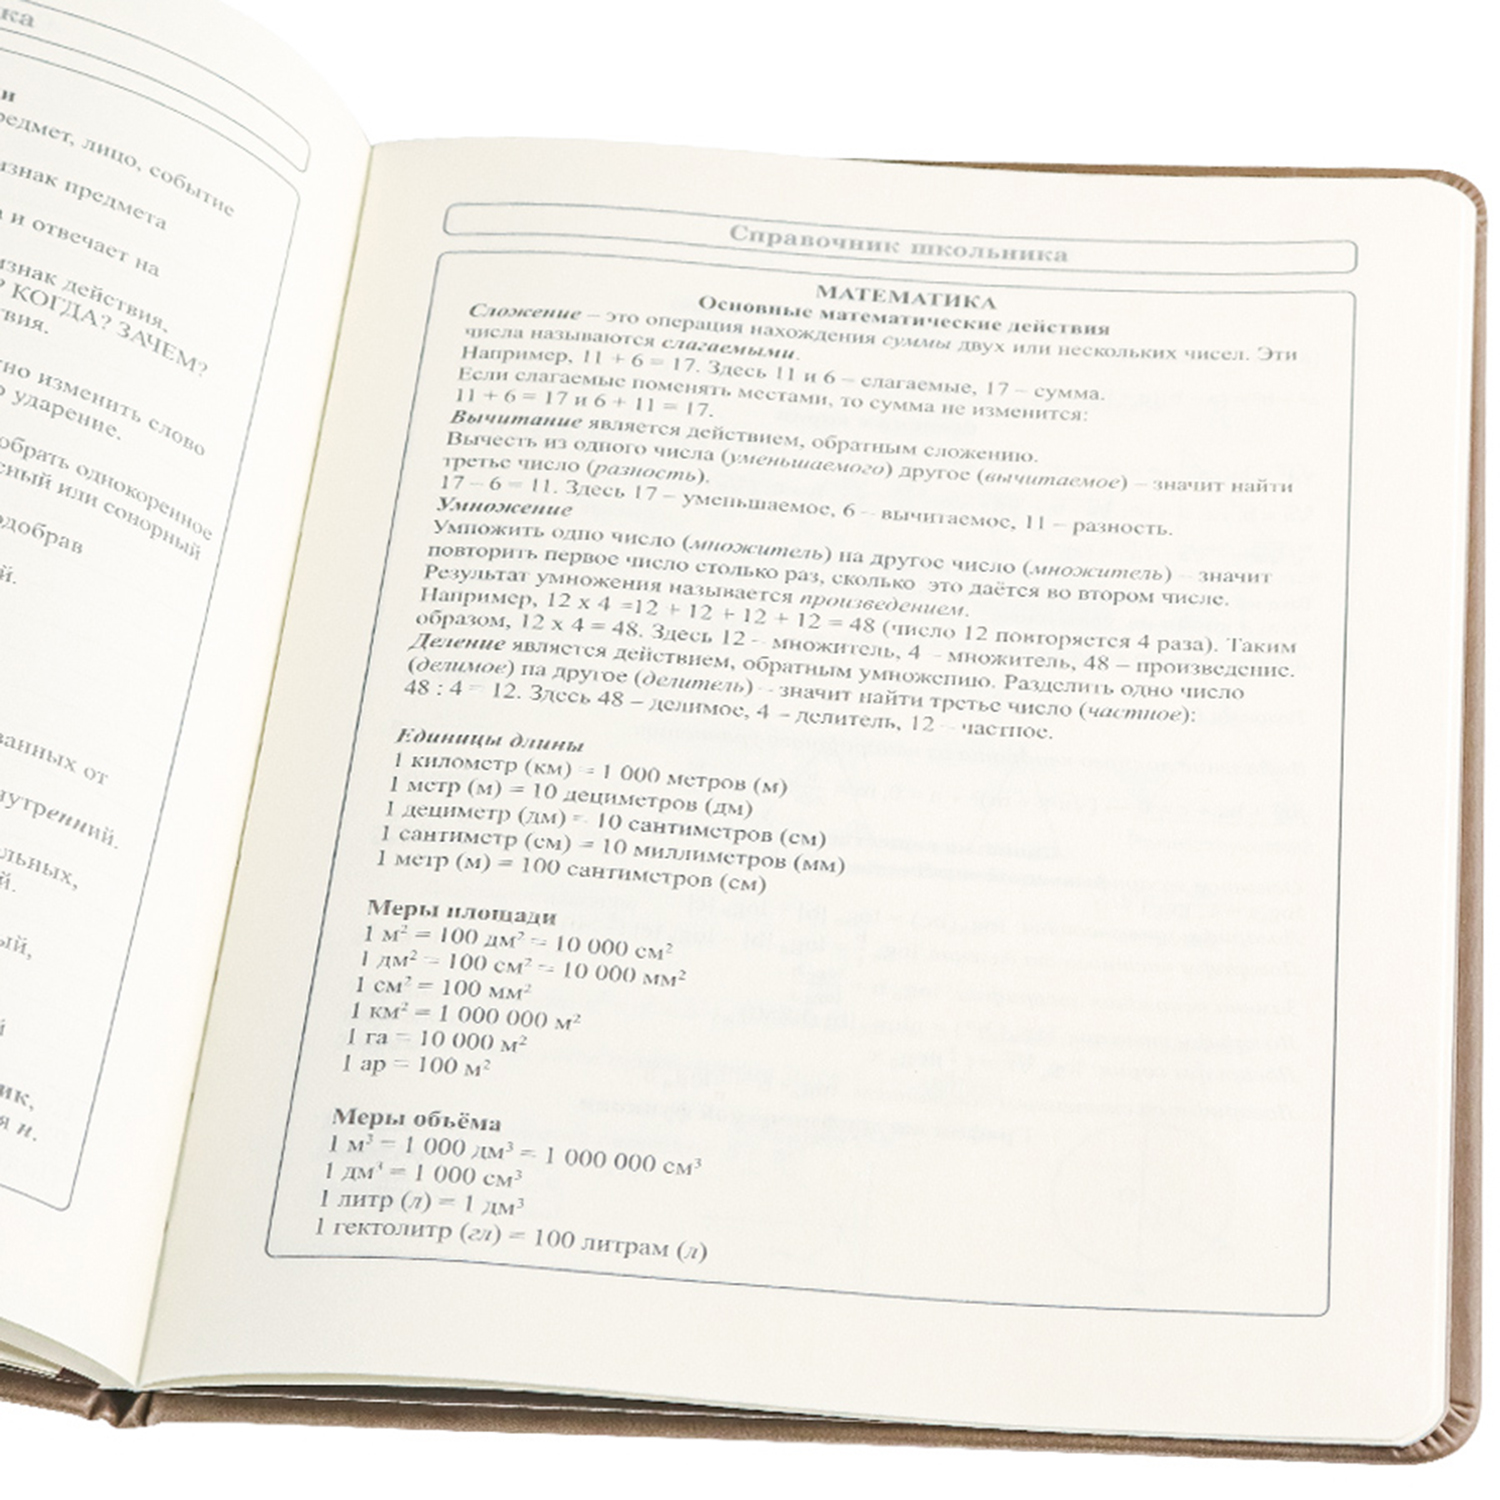 ка
и
редмет, лицо, событие
изнак предмета
а и отвечает на
изнак действия.
? КОГДА? ЗАЧЕМ?
твия.
но изменить слово
о ударение.
обрать однокоренное
сный или сонорный
одобрав
й.
ванных от
нутренний.
льных,
й.
ый,
й
ик,
я и.
Справочник школьника
МАТЕМАТИКА
Основные математические действия
Сложение – это операция нахождения суммы двух или нескольких чисел. Эти
числа называются слагаемыми.
Например, 11 + 6 = 17. Здесь 11 и 6 – слагаемые, 17 – сумма.
Если слагаемые поменять местами, то сумма не изменится:
11 + 6 = 17 и 6 + 11 = 17.
Вычитание является действием, обратным сложению.
Вычесть из одного числа (уменьшаемого) другое (вычитаемое) – значит найти
третье число (разность).
17 – 6 = 11. Здесь 17 – уменьшаемое, 6 – вычитаемое, 11 – разность.
Умножение
Умножить одно число (множитель) на другое число (множитель) – значит
повторить первое число столько раз, сколько это даётся во втором числе.
Результат умножения называется произведением.
Например, 12 х 4 =12 + 12 + 12 + 12 = 48 (число 12 повторяется 4 раза). Таким
образом, 12 х 4 = 48. Здесь 12 – множитель, 4 – множитель, 48 – произведение.
Деление является действием, обратным умножению. Разделить одно число
(делимое) на другое (делитель) – значит найти третье число (частное):
48 : 4 = 12. Здесь 48 – делимое, 4 – делитель, 12 – частное.
Единицы длины
1 километр (км) = 1 000 метров (м)
1 метр (м) = 10 дециметров (дм)
1 дециметр (дм) = 10 сантиметров (см)
1 сантиметр (см) = 10 миллиметров (мм)
1 метр (м) = 100 сантиметров (см)
Меры площади
1 м² = 100 дм² = 10 000 см²
1 дм² = 100 см² = 10 000 мм²
1 см² = 100 мм²
1 км² = 1 000 000 м²
1 га = 10 000 м²
1 ар = 100 м²
Меры объёма
1 м³ = 1 000 дм³ = 1 000 000 см³
1 дм³ = 1 000 см³
1 литр (л) = 1 дм³
1 гектолитр (гл) = 100 литрам (л)